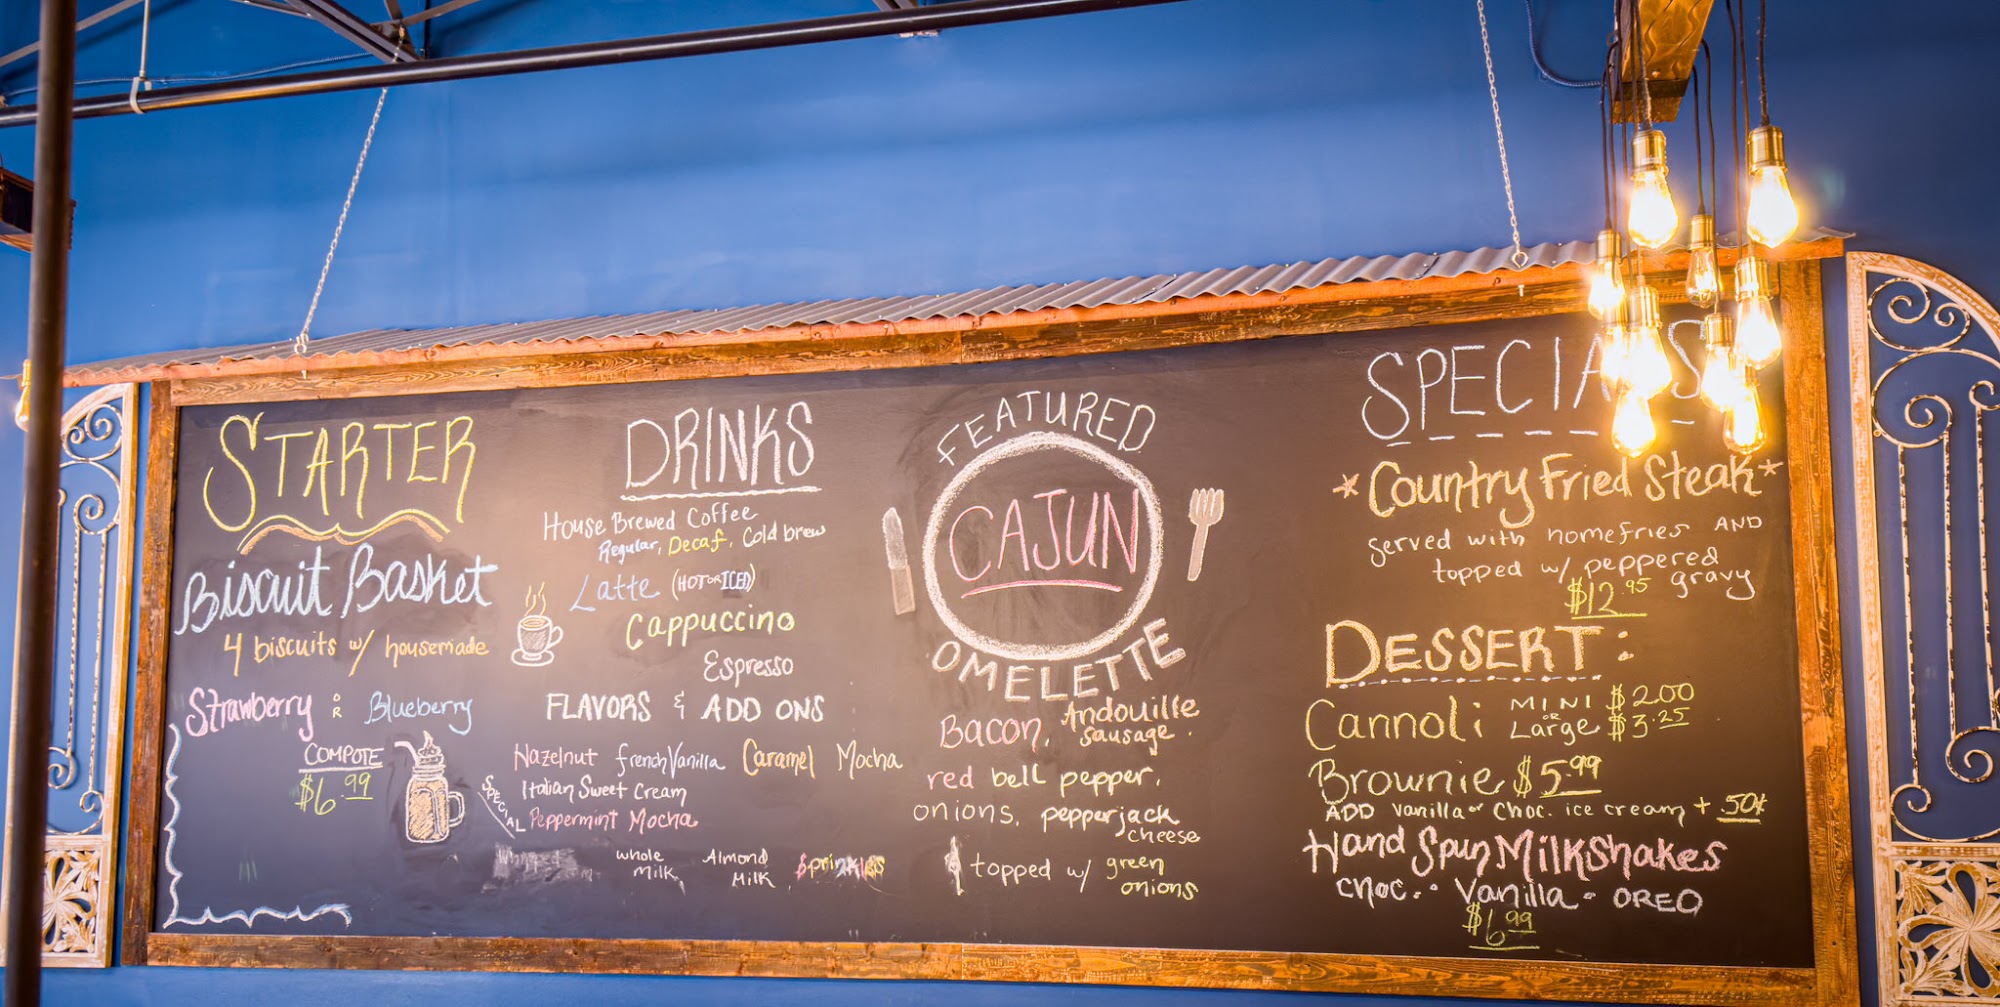 STARTER
Biscuit Basket
4 biscuits w/ housemade
Strawberry OR Blueberry
COMPOTE
$6.99
DRINKS
House Brewed Coffee
Regular, Decaf, Cold brew
Latte (HOT OR ICED)
Cappuccino
Espresso
FLAVORS & ADD ONS
Hazelnut French Vanilla Caramel Mocha
Italian Sweet Cream
SPECIAL Peppermint Mocha
whole milk, Almond Milk, Sprinkles
FEATURED
CAJUN
OMELETTE
Bacon, Andouille sausage.
red bell pepper,
onions, pepperjack
cheese
& topped w/ green
onions
SPECIALS
*Country Fried Steak*
served with homefries AND
topped w/ peppered
gravy
$12.95
DESSERT:
Cannoli MINI $2.00
or Large $3.25
Brownie $5.99
ADD vanilla or Choc. ice cream + .50¢
Hand Spun MilkShakes
Choc. • Vanilla • OREO
$6.99